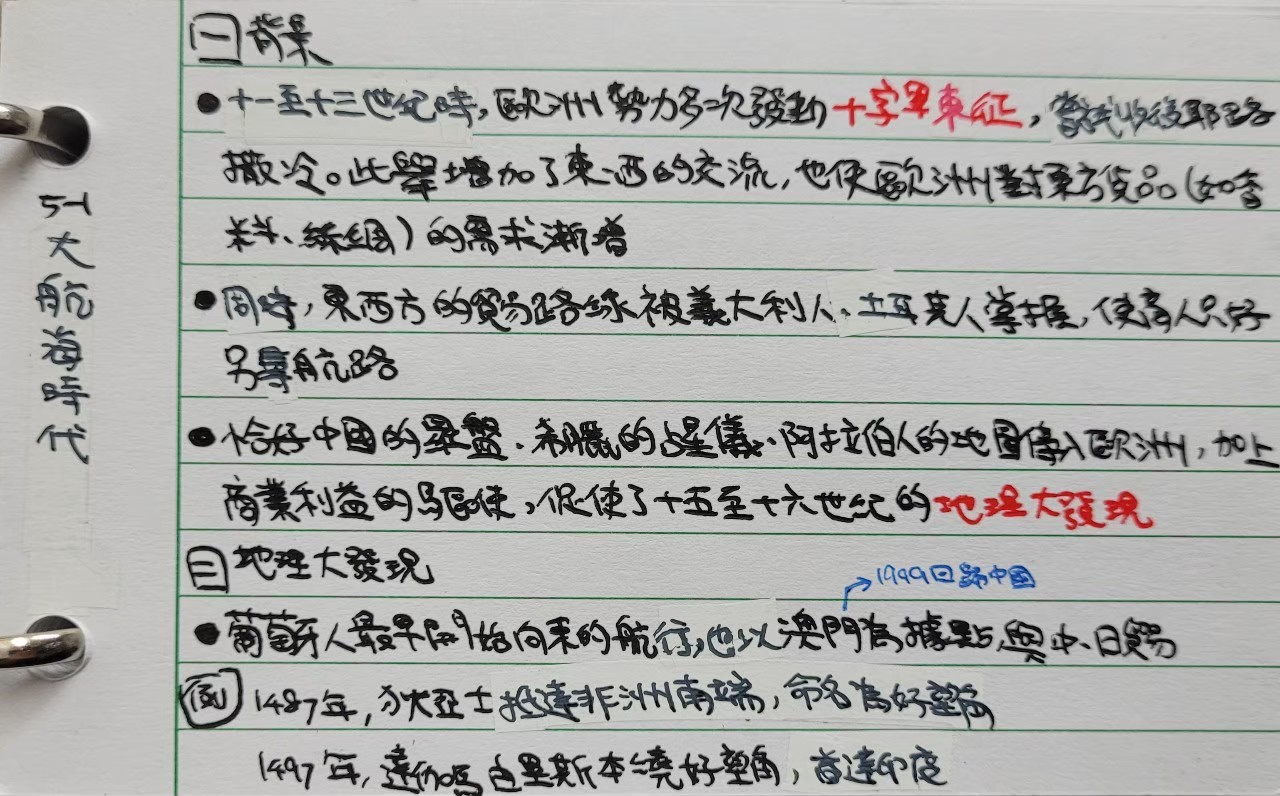 5-1大航海時代
㊀背景
●十一至十三世紀時，歐洲勢力多次發動十字軍東征，嘗試收復耶路
撒冷。此舉增加了東、西的交流，也使歐洲對東方貨品（如香
料、絲綢）的需求漸增
●同時，東西方的貿易路線被義大利人、土耳其人掌握，使商人只好
另尋航路
●恰好中國的羅盤、希臘的占星儀、阿拉伯人的地圖傳入歐洲，加上
商業利益的驅使，促使了十五至十六世紀的地理大發現
㊁地理大發現
1999回歸中國
●葡萄牙人最早開始向東的航行，也以澳門為據點與中、日貿易
1487年，狄亞士抵達非洲南端，命名為好望角
1497年，達伽瑪由里斯本繞好望角，首達印度